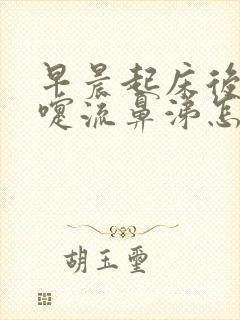 早晨起床後
嚏流鼻涕怎
胡玉璽